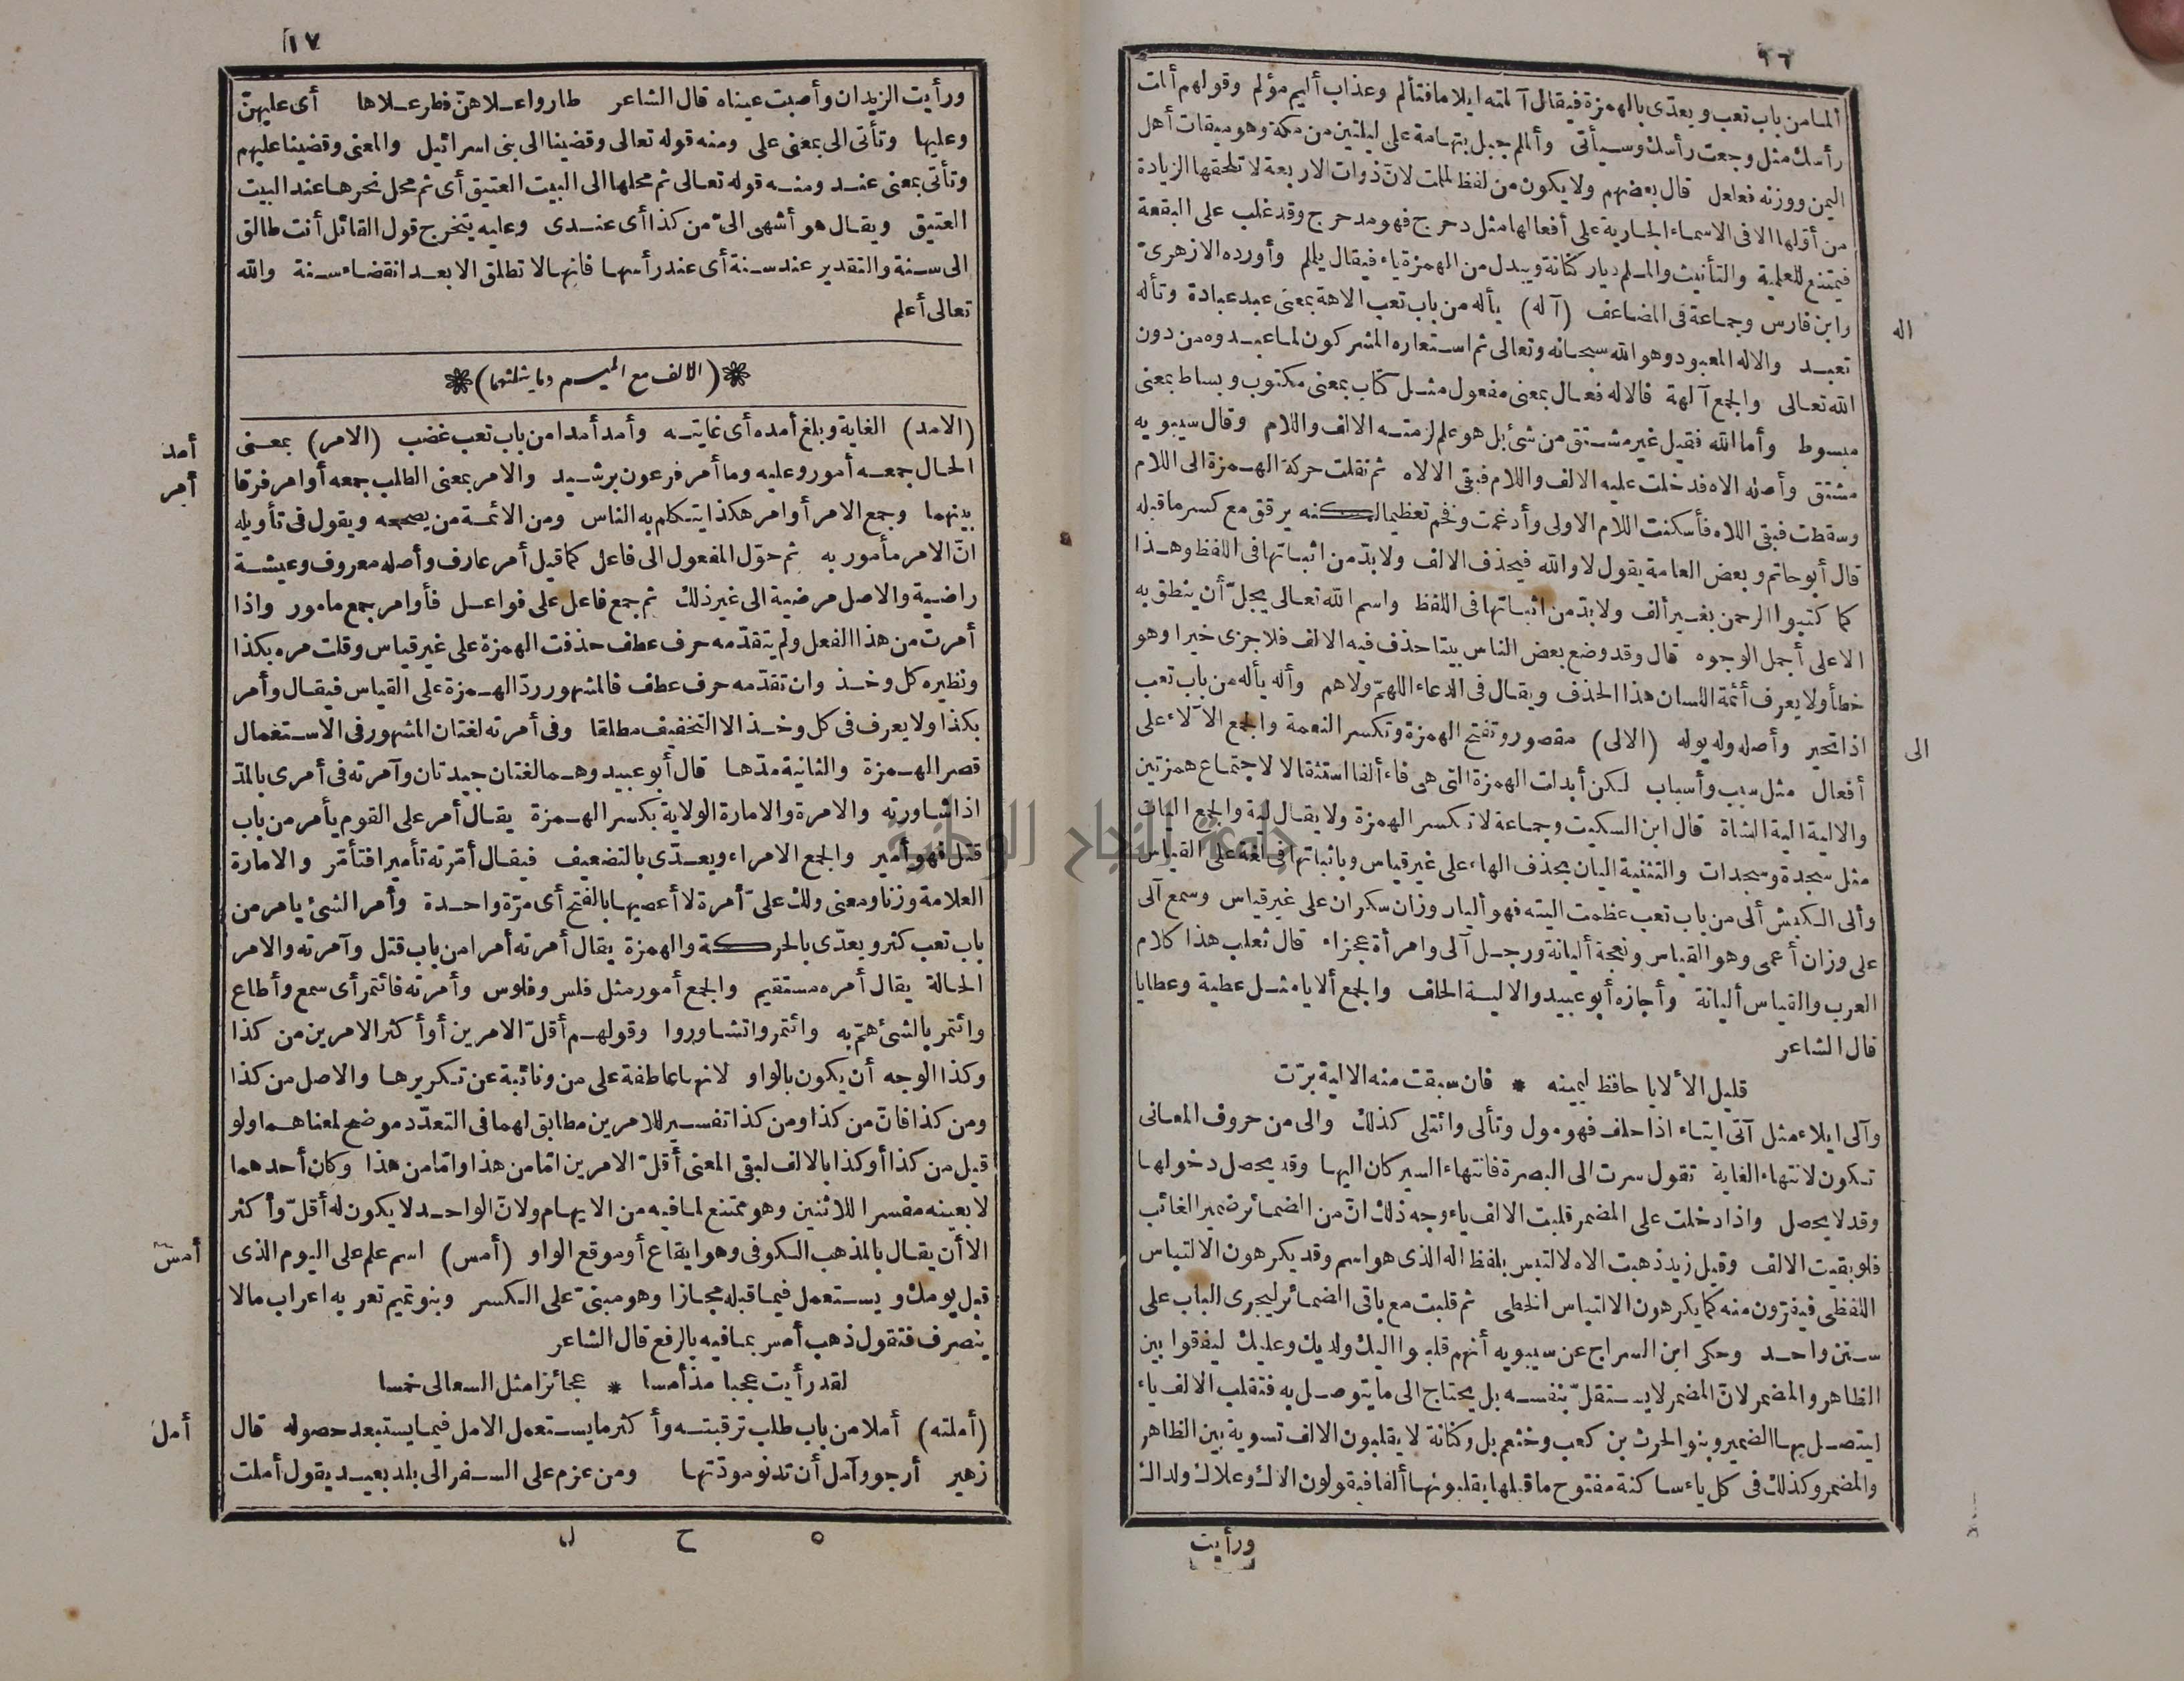 ١٦
ألما من باب تعب ويعدّى بالهمزة فيقال آلمته ايلاما فتألم وعذاب أليم مؤلم وقولهم ألمت
رأسك مثل وجعت رأسك وسيأتى وألملم جبل بتهامة على ليلتين من مكة وهو ميقات أهل
اليمن ووزنه فعلعل قال بعضهم ولا يكون من لفظ لملمت لانّ ذوات الاربعة لا تلحقها الزيادة
من أوّلها الا فى الاسماء الجارية على أفعالها مثل دحرج فهو مدحرج وقد غلب على البقعة
فيمتنع للعلمية والتأنيث والملم ديار كنانة ويبدل من الهمزة ياء فيقال يلملم وأورده الازهرىّ
وابن فارس وجماعة فى المضاعف (آله) يأله من باب تعب الاهة بمعنى عبد عبادة وتأله
اله
تعبد والاله المعبود وهو الله سبحانه وتعالى ثم استعاره المشركون لما عبدوه من دون
الله تعالى والجمع آلهة فالاله فعال بمعنى مفعول مثل كتاب بمعنى مكتوب وبساط بمعنى
مبسوط وأما الله فقيل غير مشتق من شئ بل هو علم لزمته الالف واللام وقال سيبويه
مشتق وأصله الاه فدخلت عليه الالف واللام فبقى الالاه ثم نقلت حركة الهمزة الى اللام
وسقطت فبقى اللاه فأسكنت اللام الاولى وأدغمت وفخم تعظيما لكنه يرقق مع كسر ما قبله
قال أبو حاتم وبعض العامة يقول لا والله فيحذف الالف ولا بدّ من اثباتها فى اللفظ وهذا
كما كتبوا الرحمن بغير ألف ولا بدّ من اثباتها فى اللفظ واسم الله تعالى يجلّ أن ينطق به
الا على أجمل الوجوه قال وقد وضع بعض الناس بيتا حذف فيه الالف فلا جزى خيرا وهو
خطأ ولا يعرف أئمة اللسان هذا الحذف ويقال فى الدعاء اللهمّ ولاهم وأله يأله من باب تعب
اذا تحير وأصله وله يوله (الالى) مقصور وتفتح الهمزة وتكسر النعمة والجمع الآلاء على
الى
أفعال مثل سبب وأسباب لكن أبدلت الهمزة التى هى فاء ألفا استثقالا لاجتماع همزتين
والالية الية الشاة قال ابن السكيت وجماعة لا تكسر الهمزة ولا يقال لية والجمع اليات
مثل سجدة وسجدات والتثنية اليان بحذف الهاء على غير قياس وباثباتها فى لغة على القياس
وألى الكبش ألى من باب تعب عظمت اليته فهو أليان وزان سكران على غير قياس وسمع آلى
على وزان أعمى وهو القياس ونعجة أليانة ورجل آلى وامرأة عجزاء قال ثعلب هذا كلام
العرب والقياس أليانة وأجازه أبو عبيد والالية الحلف والجمع ألايا مثل عطية وعطايا
قال الشاعر
قليل الألايا حافظ ليمينه * فان سبقت منه الالية برّت
وآلى ايلاء مثل آتى ايتاء اذا حلف فهو مول وتألى وائتلى كذلك والى من حروف المعانى
تكون لانتهاء الغاية تقول سرت الى البصرة فانتهاء السير كان اليها وقد يحصل دخولها
وقد لا يحصل واذا دخلت على المضمر قلبت الالف ياء وجه ذلك انّ من الضمائر ضمير الغائب
فلو بقيت الالف وقيل زيد ذهبت الاه لالتبس بلفظ اله الذى هو اسم وقد يكرهون الالتباس
اللفظى فيفرّون منه كما يكرهون الالتباس الخطى ثم قلبت مع باقى الضمائر ليجرى الباب على
سنن واحد وحكى ابن السراج عن سيبويه أنهم قلبوا اليك ولديك وعليك ليفرقوا بين
الظاهر والمضمر لانّ المضمر لا يستقلّ بنفسه بل يحتاج الى ما يتوصل به فتقلب الالف ياء
ليتصل بها الضمير وبنو الحرث بن كعب وخثعم بل وكنانة لا يقلبون الالف تسوية بين الظاهر
والمضمر وكذلك فى كل ياء ساكنة مفتوح ما قبلها يقلبونها ألفا فيقولون الاك وعلاك ولداك
ورأيت
١٧
ورأيت الزيدان وأصبت عيناه قال الشاعر طاروا علاهنّ فطر علاها أى عليهنّ
وعليها وتأتى الى بمعنى على ومنه قوله تعالى وقضينا الى بنى اسرائيل والمعنى وقضينا عليهم
وتأتى بمعنى عند ومنه قوله تعالى ثم محلها الى البيت العتيق أى ثم محل نحرها عند البيت
العتيق ويقال هو أشهى الىّ من كذا أى عندى وعليه يتخرج قول القائل أنت طالق
الى سنة والتقدير عند سنة أى عند رأسها فانها لا تطلق الا بعد انقضاء سنة والله
تعالى أعلم
(الالف مع الميم وما يثلثهما)
(الامد) الغاية وبلغ أمده أى غايته وأمد أمدا من باب تعب غضب (الامر) بمعنى
أمد
الحال جمعه أمور وعليه وما أمر فرعون برشيد والامر بمعنى الطلب جمعه أوامر فرقا
أمر
بينهما وجمع الامر أوامر هكذا يتكلم به الناس ومن الائمة من يصححه ويقول فى تأويله
انّ الامر مأمور به ثم حوّل المفعول الى فاعل كما قيل أمر عارف وأصله معروف وعيشة
راضية والاصل مرضية الى غير ذلك ثم جمع فاعل على فواعل فأوامر جمع مامور واذا
أمرت من هذا الفعل ولم يتقدّمه حرف عطف حذفت الهمزة على غير قياس وقلت مره بكذا
ونظيره كل وخذ وان تقدّمه حرف عطف فالمشهور ردّ الهمزة على القياس فيقال وأمر
بكذا ولا يعرف فى كل وخذ الا التخفيف مطلقا وفى أمرته لغتان المشهور فى الاستعمال
قصر الهمزة والثانية مدّها قال أبو عبيد وهما لغتان جيدتان وآمرته فى أمرى بالمدّ
اذا شاورته والامرة والامارة الولاية بكسر الهمزة يقال أمر على القوم يأمر من باب
قتل فهو أمير والجمع الامراء ويعدّى بالتضعيف فيقال أمّرته تأميرا فتأمّر والامارة
العلامة وزنا ومعنى ولك علىّ أمرة لا أعصيها بالفتح أى مرّة واحدة وأمر الشئ يامر من
باب تعب كثر ويعدّى بالحركة والهمزة يقال أمرته أمرا من باب قتل وآمرته والامر
الحالة يقال أمره مستقيم والجمع أمور مثل فلس وفلوس وأمرته فائتمر أى سمع وأطاع
وائتمر بالشئ همّ به وائتمروا تشاوروا وقولهم أقلّ الامرين أو أكثر الامرين من كذا
وكذا الوجه أن يكون بالواو لانها عاطفة على من ونائبة عن تكريرها والاصل من كذا
ومن كذا فانّ من كذا ومن كذا تفسير للامرين مطابق لهما فى التعدّد موضح لمعناهما ولو
قيل من كذا أو كذا بالالف لبقى المعنى أقلّ الامرين امّا من هذا وامّا من هذا وكان أحدهما
لا بعينه مفسرا للاثنين وهو ممتنع لما فيه من الابهام ولانّ الواحد لا يكون له أقلّ وأكثر
الا أن يقال بالمذهب الكوفى وهو ايقاع أو موقع الواو (أمس) اسم علم على اليوم الذى
أمس
قبل يومك ويستعمل فيما قبله مجازا وهو مبنىّ على الكسر وبنو تميم تعربه اعراب ما لا
ينصرف فتقول ذهب أمس بما فيه بالرفع قال الشاعر
لقد رأيت عجبا مذ أمسا * عجائزا مثل السعالى خمسا
(أملته) أملا من باب طلب ترقبته وأكثر ما يستعمل الامل فيما يستبعد حصوله قال
أمل
زهير أرجو وآمل أن تدنو مودّتها ومن عزم على السفر الى بلد بعيد يقول أملت
٥ ح ل
جامعة النجاح الوطنية